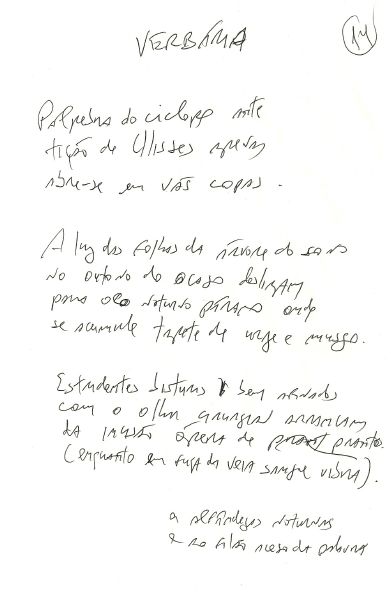 VERBÁMA
14
Pálpebra do ciclope ante
tição de Ulisses apenas
abre-se em vãs copas.
A luz das folhas da árvore do sono
No outono do ocaso deslizam
para o noturno páramo onde
se acumula tapete de urze e musgo.
Estudantes bem armados
com o olhar arrancam
da ópera de pranto
(enquanto em fuga da veia sangue vibra).
a noturnas
e ao acesa da palavra